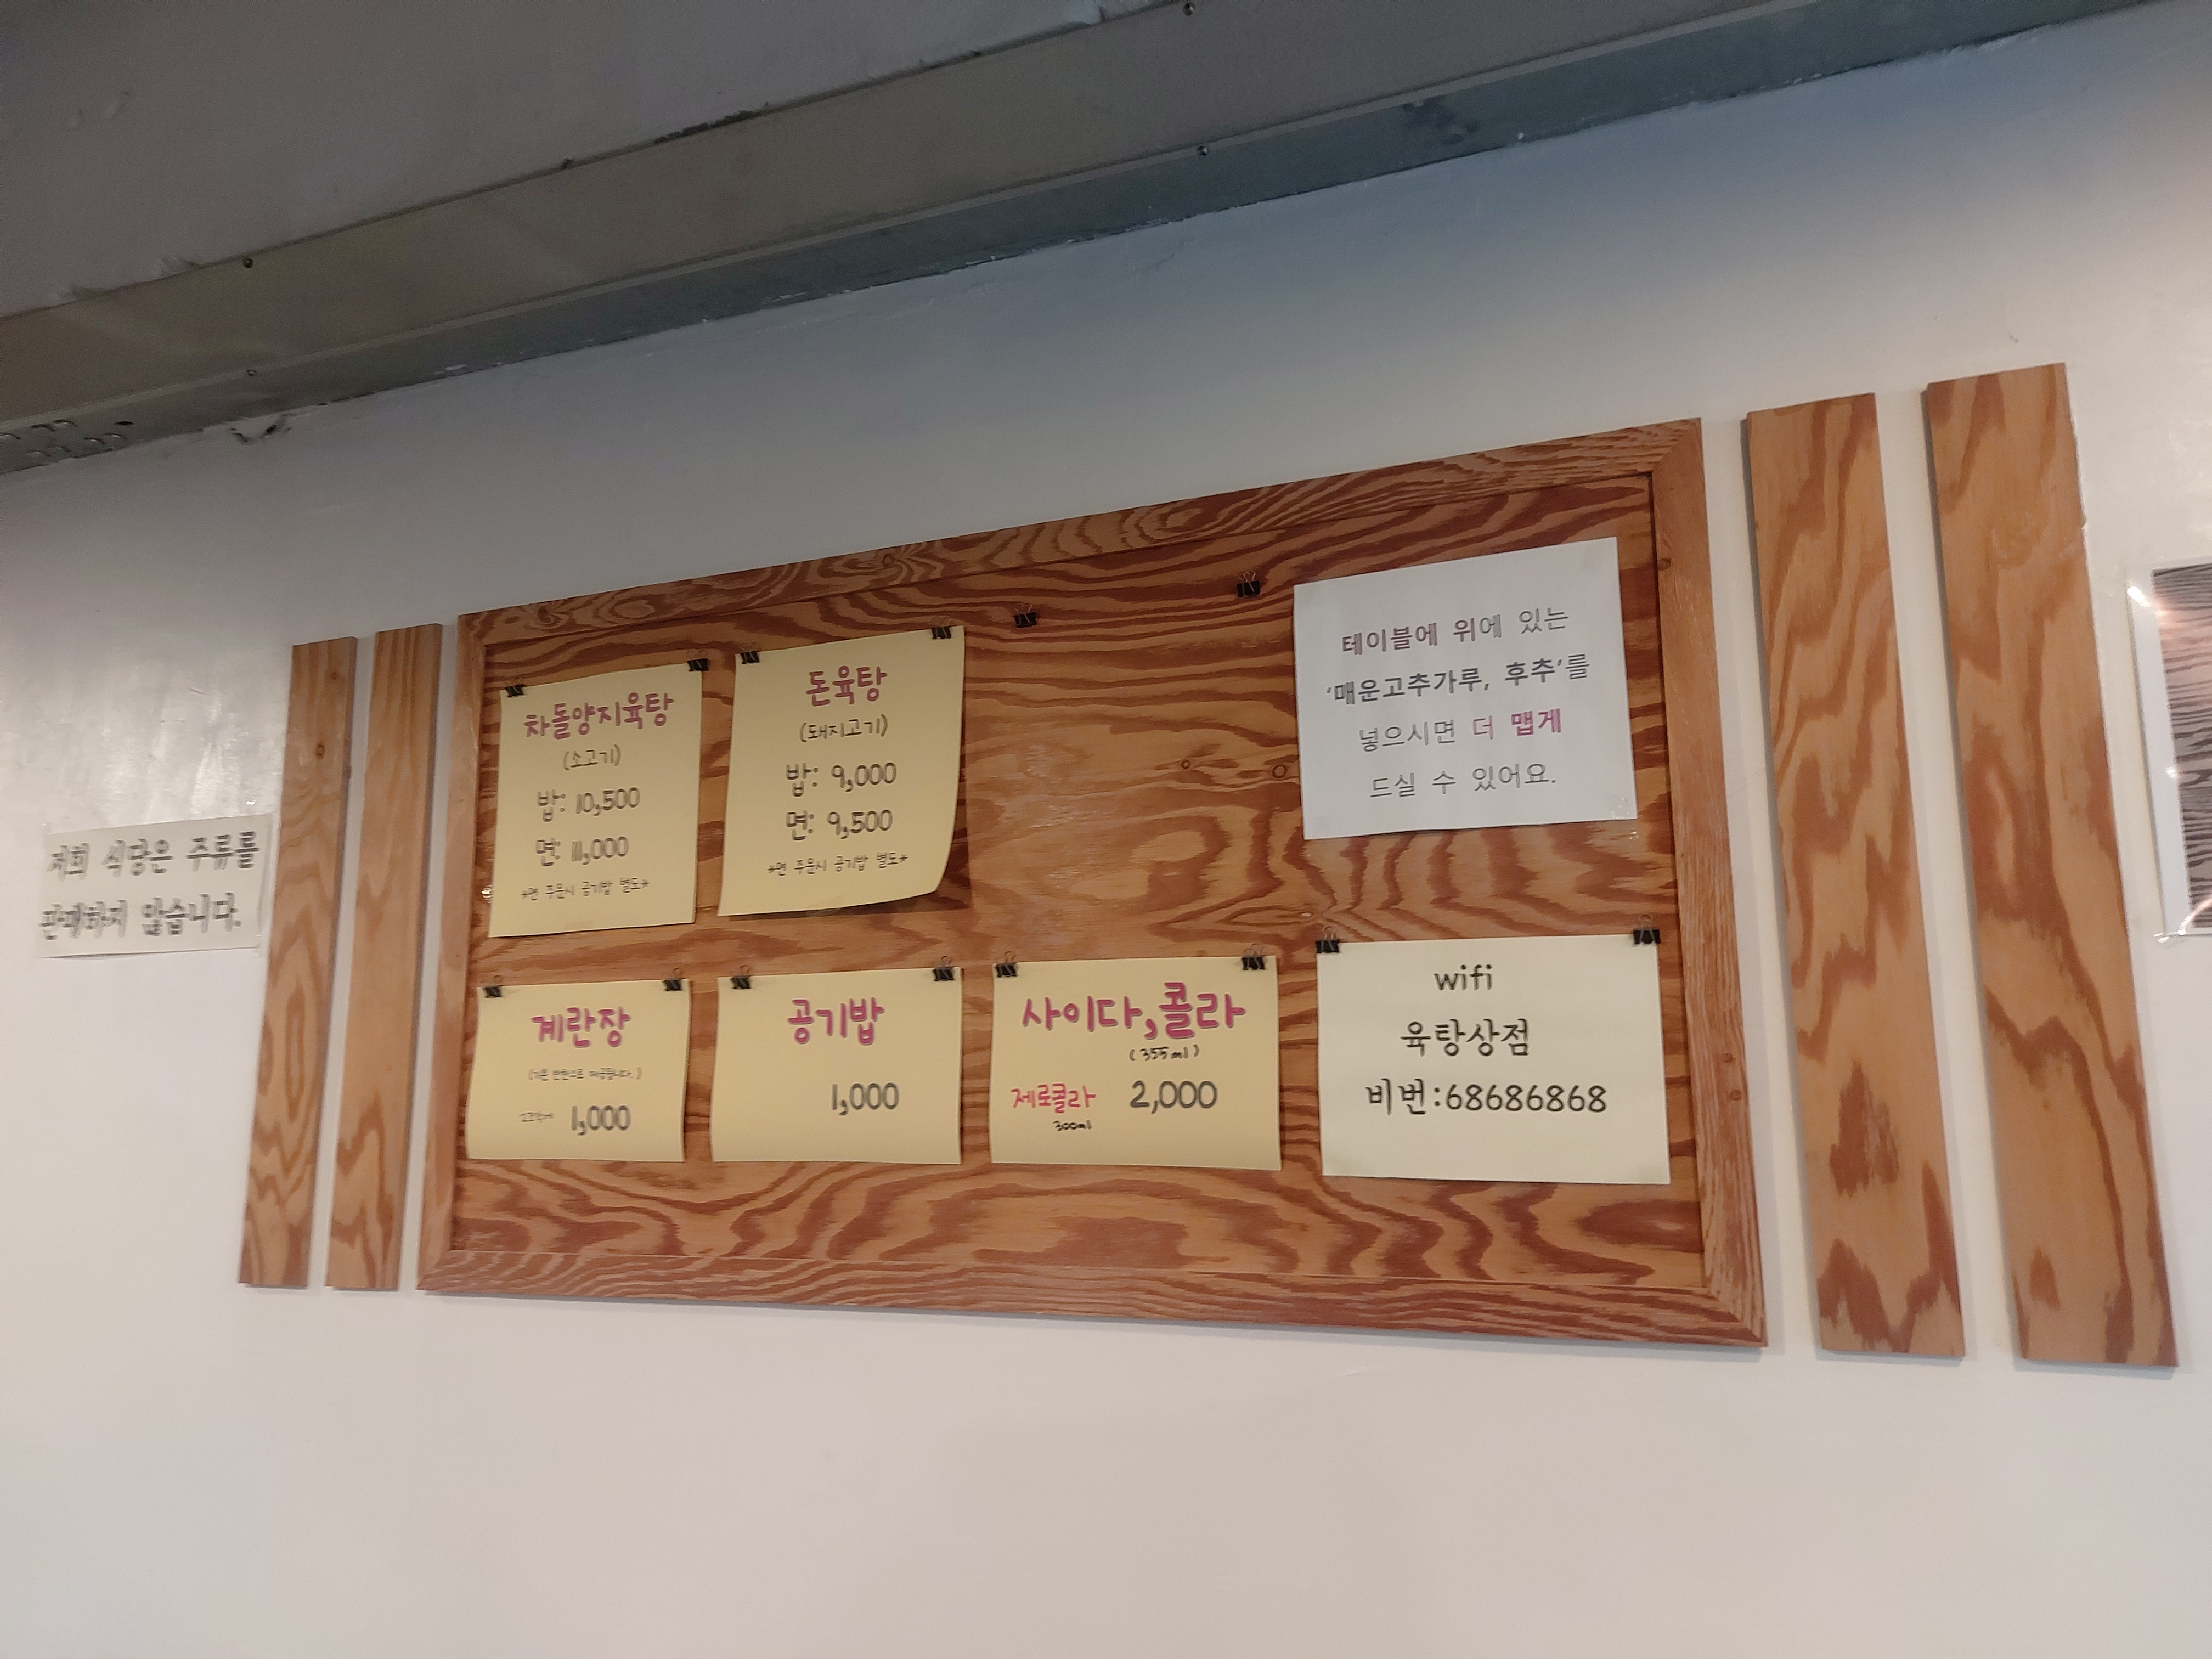 저희 식당은 주류를
판매하지 않습니다.
차돌양지육탕
(소고기)
밥: 10,500
면: 11,000
*면 주문시 공기밥 별도*
돈육탕
(돼지고기)
밥: 9,000
면: 9,500
*면 주문시 공기밥 별도*
테이블에 위에 있는
'매운고추가루, 후추'를
넣으시면 더 맵게
드실 수 있어요.
계란장
제공됩니다.)
1,000
공기밥
1,000
사이다,콜라
(355ml)
제로콜라 2,000
300ml
wifi
육탕상점
비번:68686868